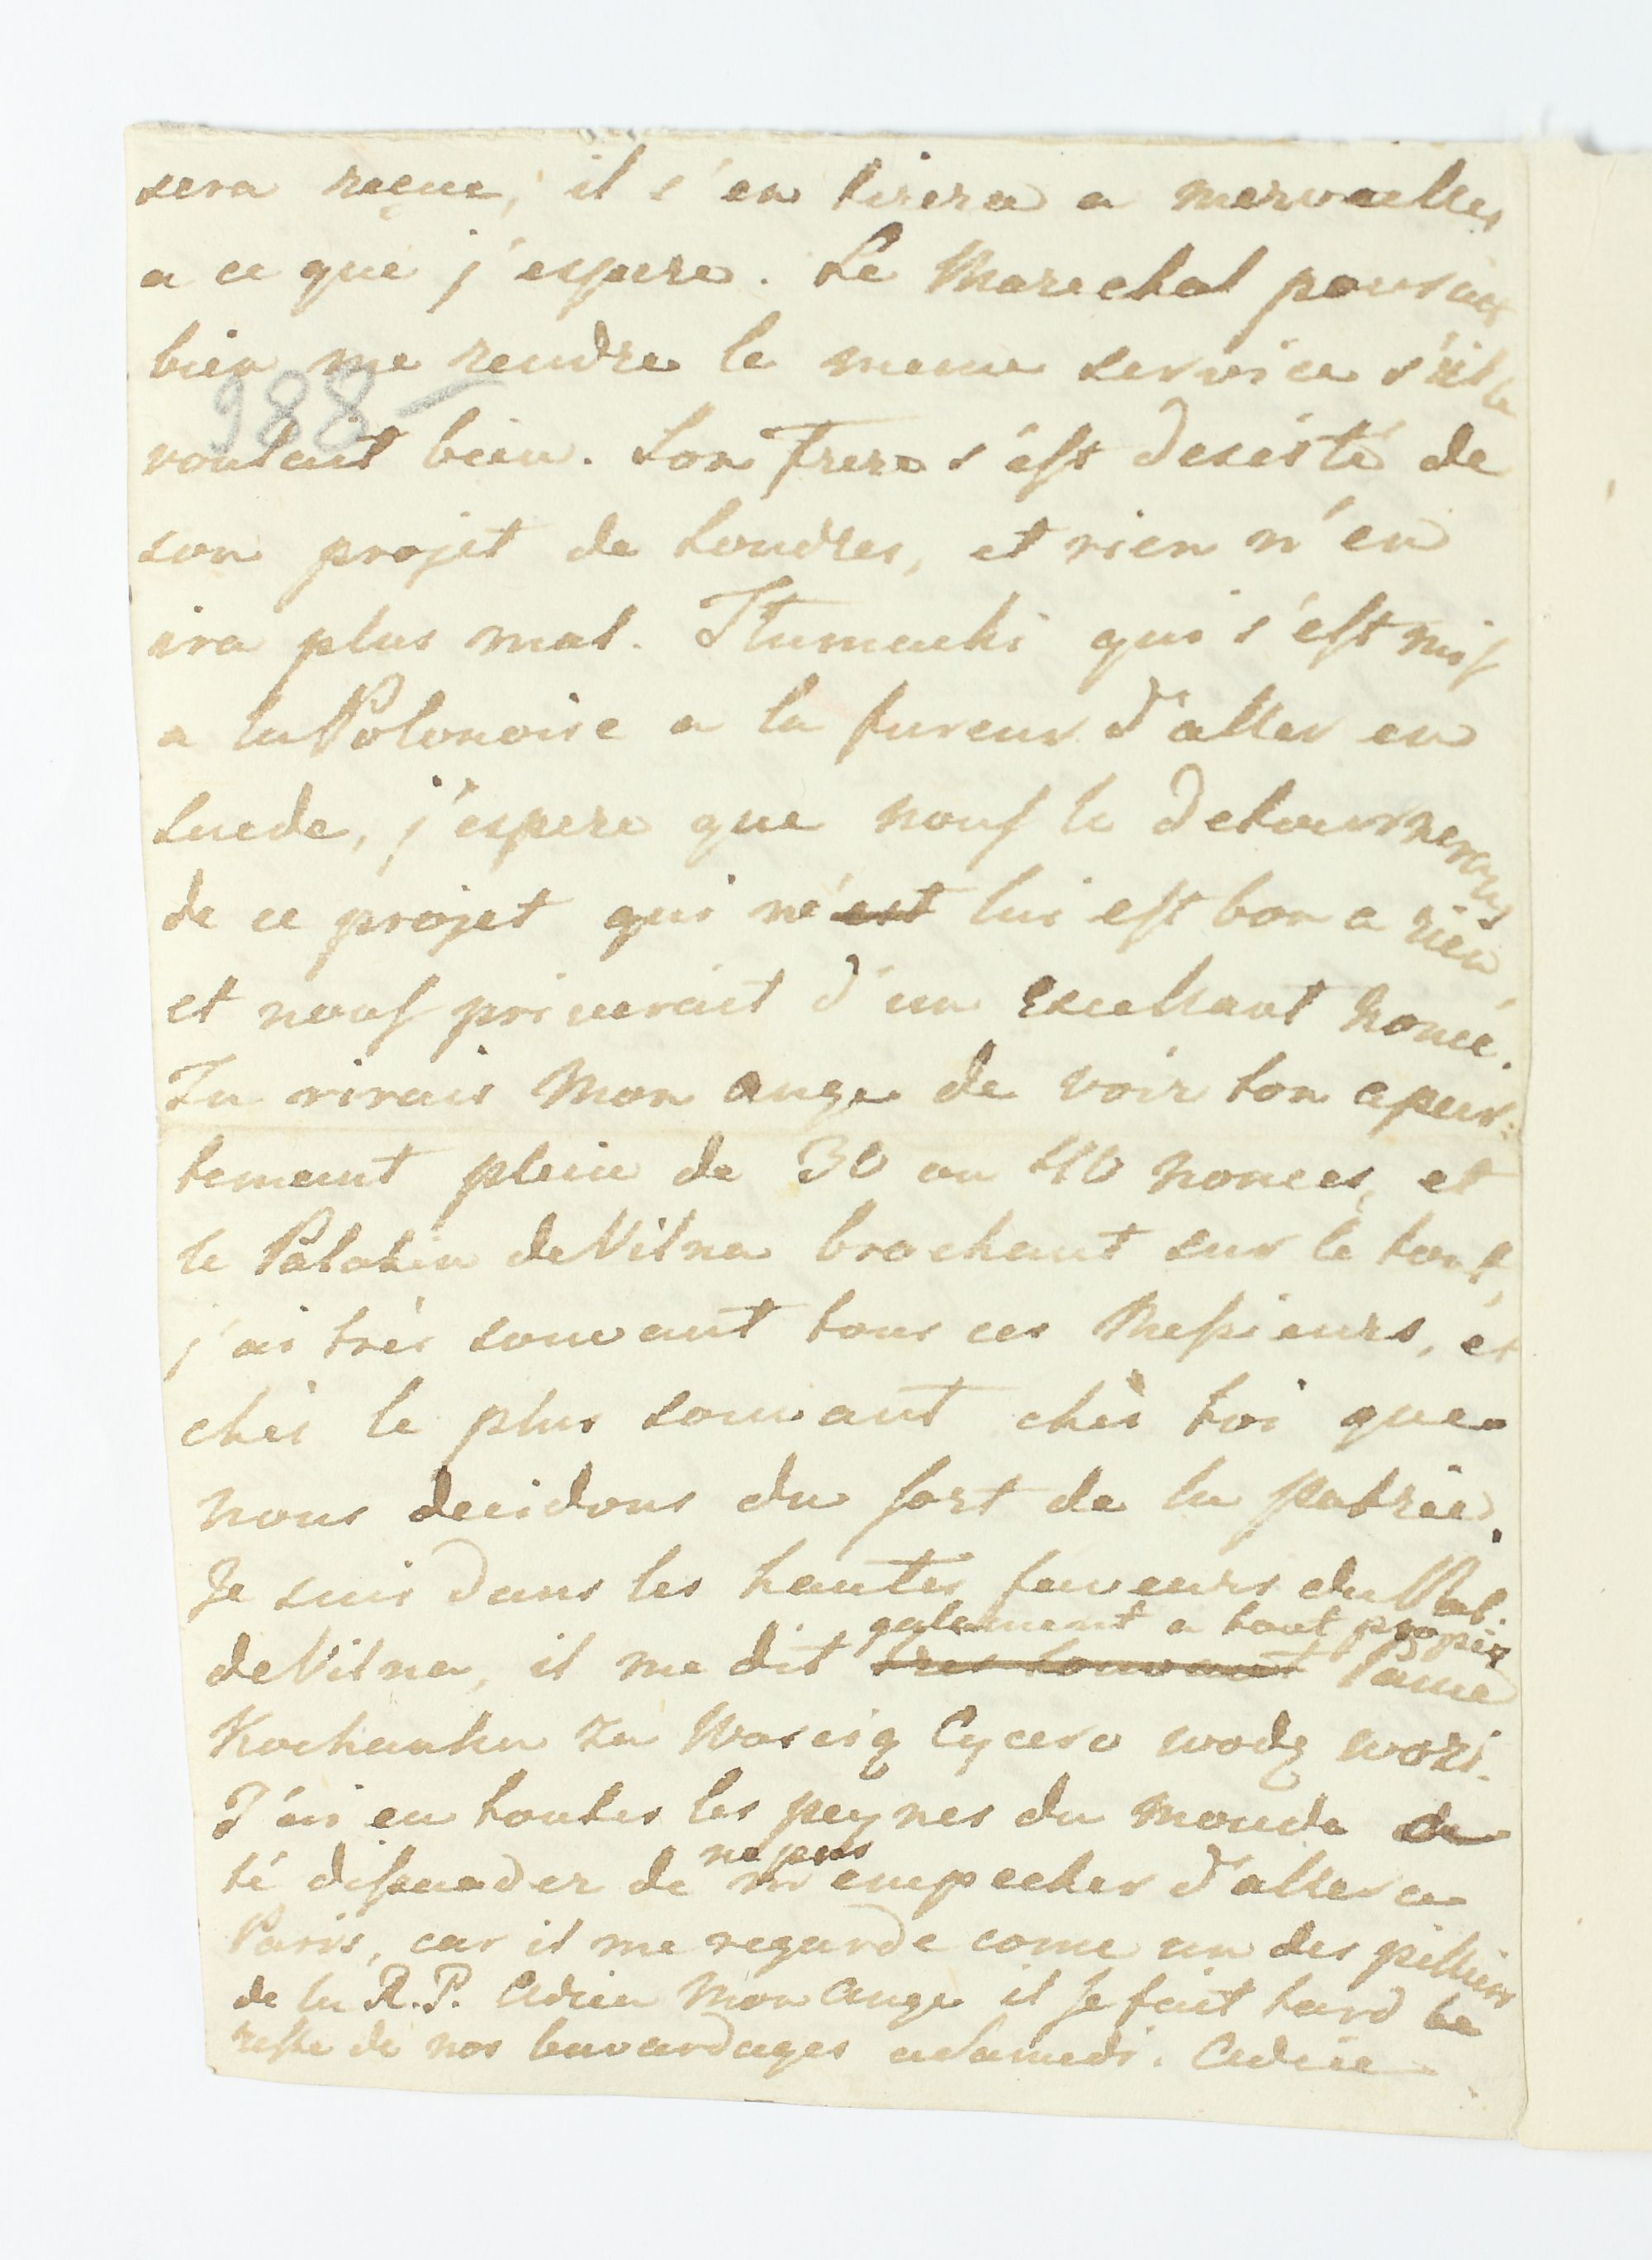 sera reçue, il s'en tirera a mervaelles
a ce que j'espere. Le Marechal pouraix
bien me rendre le meme service s'il le
988
voulait bien. Son Frere s'est desisté de
son projet de Londres, et rien n'en
ira plus mal. Tlumaski qui s'est mis
a la Polonoise a la fureur d'aller en
Suede, j'espere que nous le detournerons
de ce projet qui n'est lui est bon a rien,
et nous priverait d'un excellant nonce.
Tu rirais Mon ange de voir ton apar:
temeut plein de 30 ou 40 nonces, et
le Palatin de Vilna brochant sur le tout,
j'ai très souvant tous ces Messieurs, et
chés le plus souvant chés toi que
nous decidons du sort de la patrie.
Je suis dans les hautes faveurs du Pal.
galament a tout propos
de Vilna, il me dit tres souvant Panie
Kochanku za Wascią Cycero wodę wozi.
J'ai eu toutes les peynes du monde de
ne pas
té dissuader de m'empecher d'aller a
Paris, car il me regarde come un des pilliers
de la R.P. Adieu Mon Ange il se fait tard le
reste de nos bavardages a Samedi. Adieu